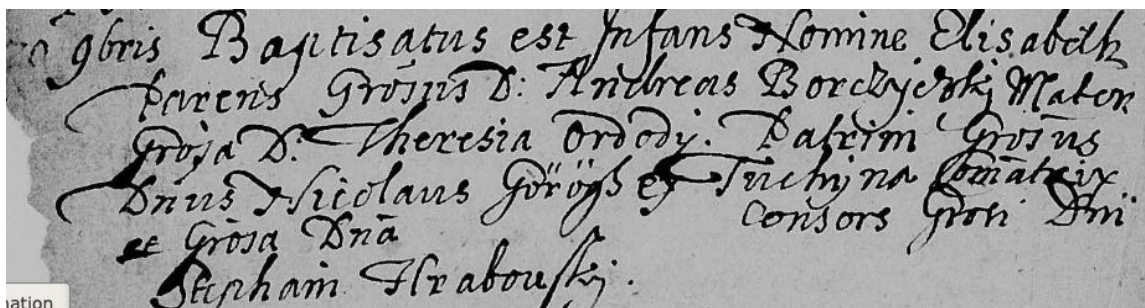 9bris Baptisatus est Infans Nomine Elisabeth
Parens Grosus D: Andreas Borczyczky Mater
Grosa D: Theresia Ordody. Patrini Grosus
Dnus Nicolaus Görögh ex Tuchyna Comatrix
et Grosa Dna Consors Grosi Dni
Stephani Hrabouszky.
nation